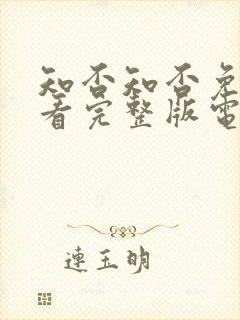 知否知否免
看完整版電
連玉明